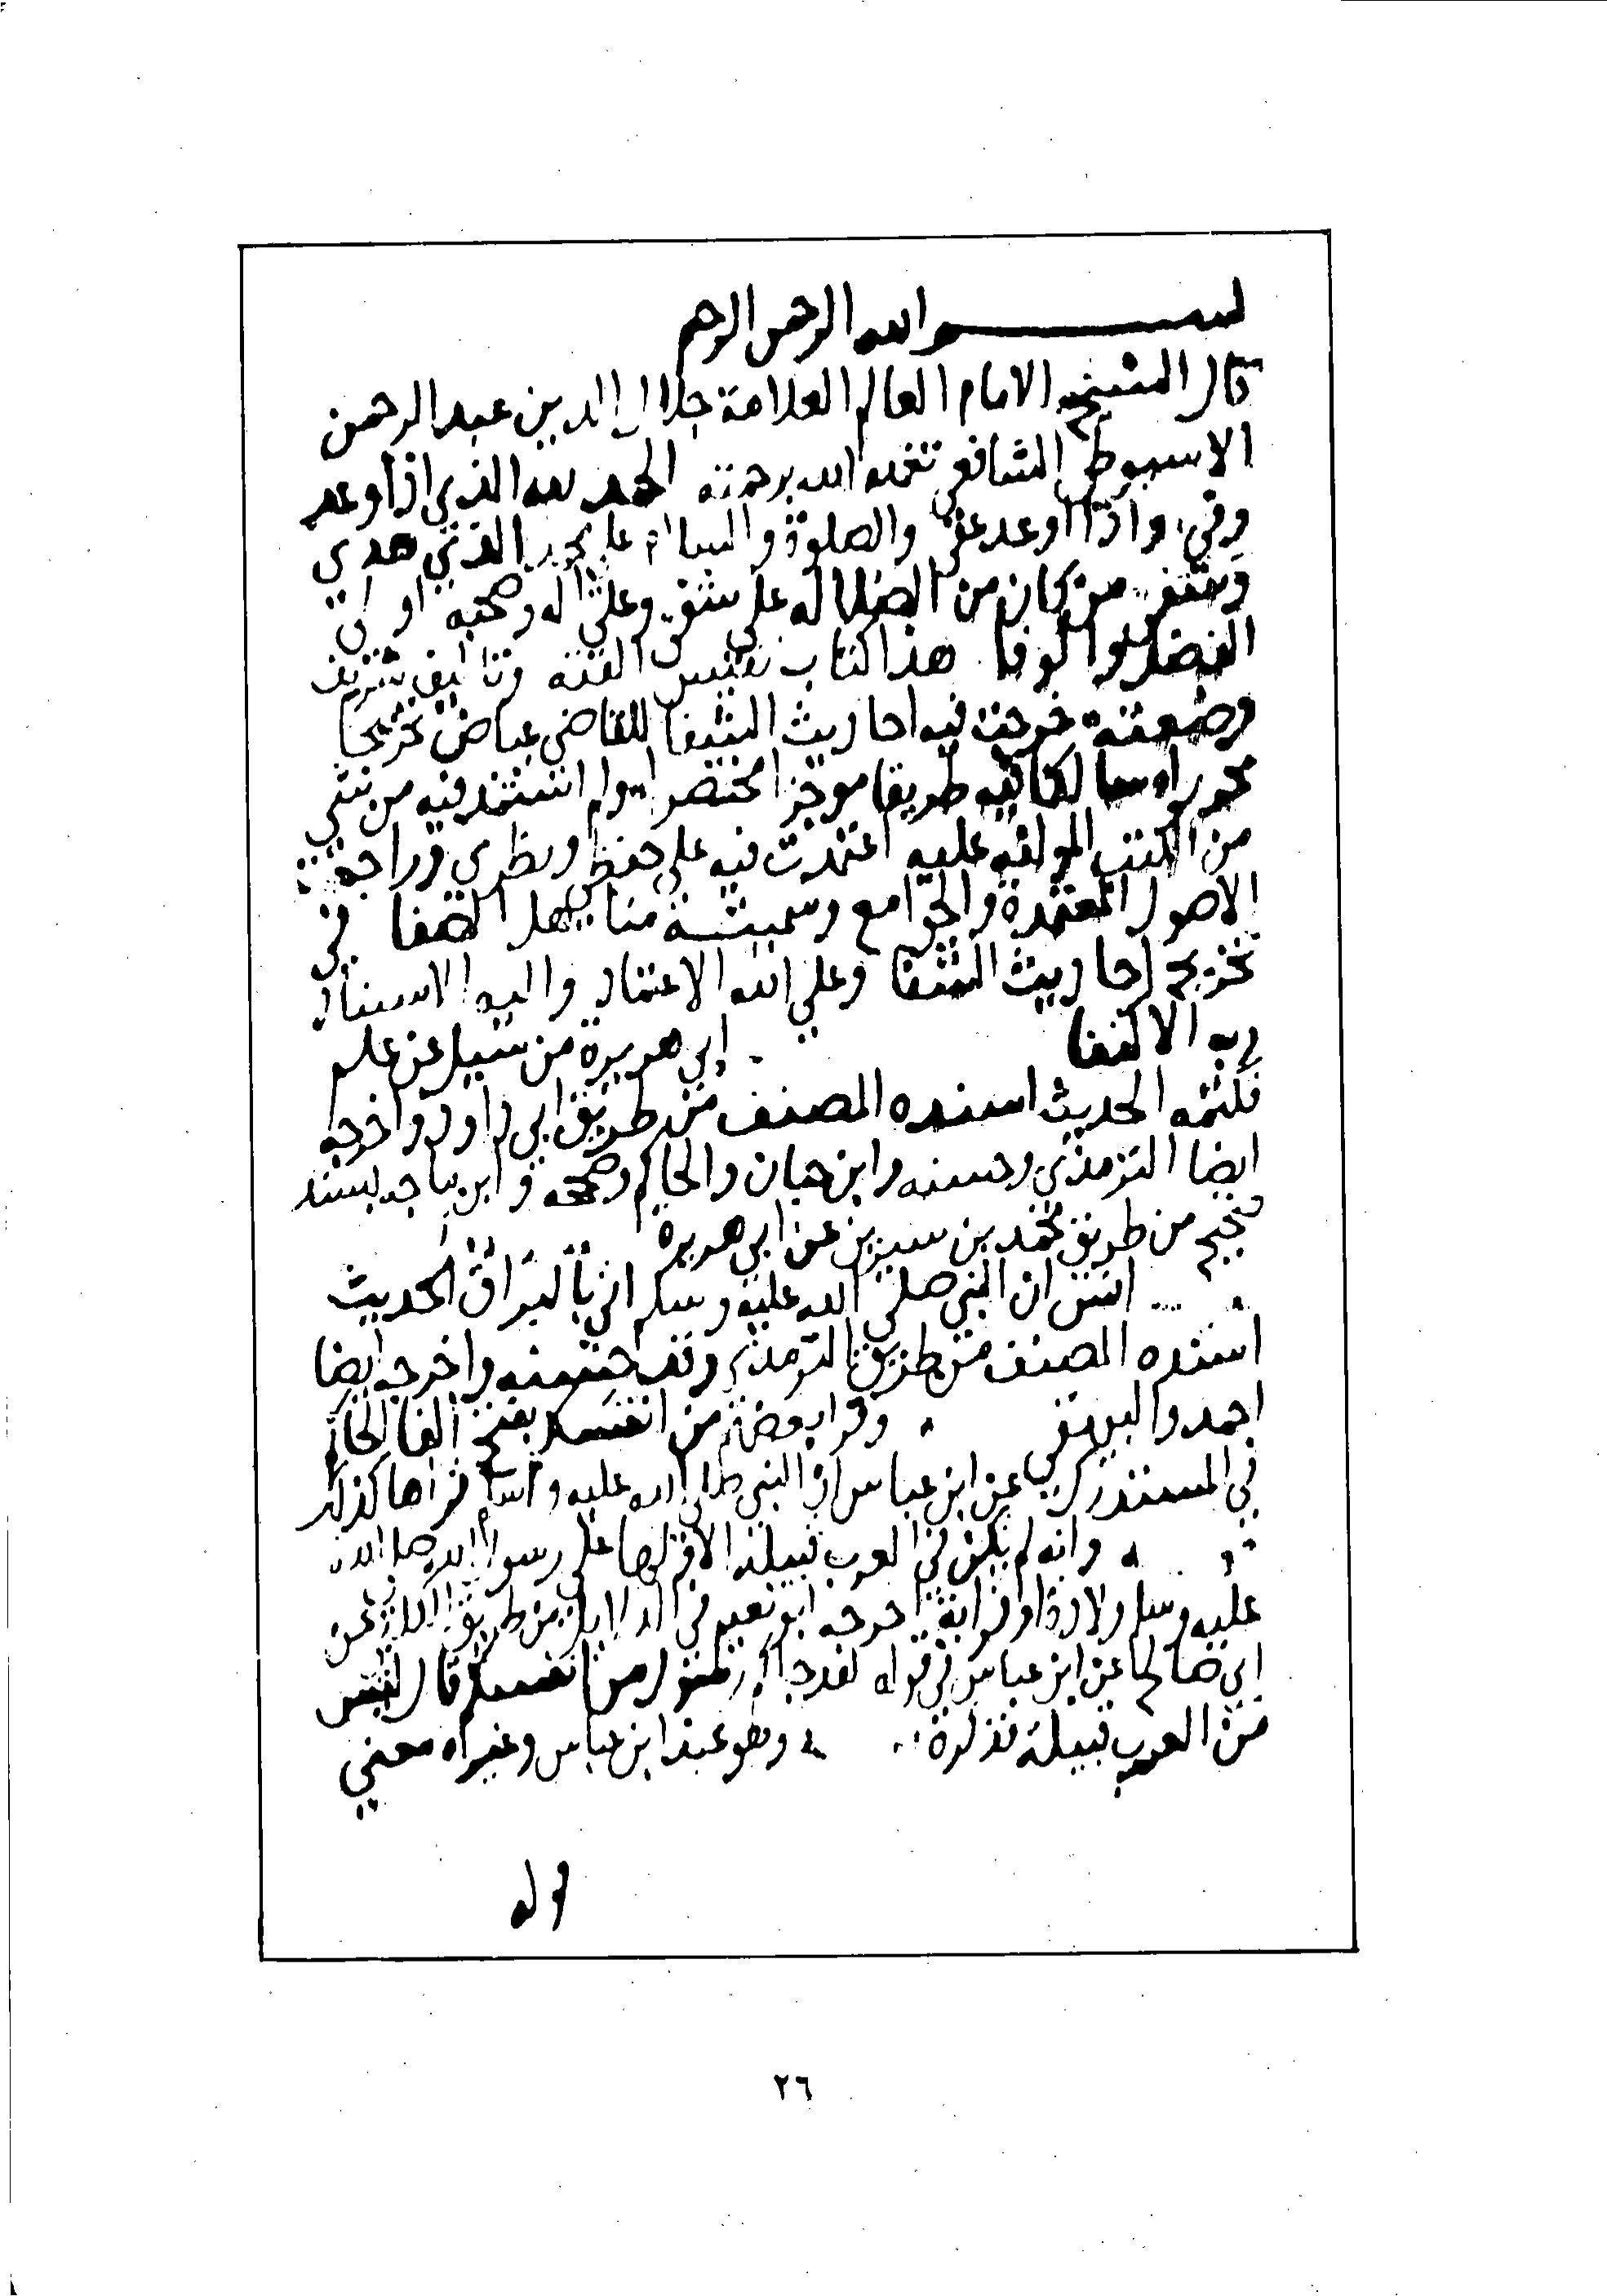 بسم الله الرحمن الرحيم
قال الشيخ الامام العالم العلامة جلال الدين عبد الرحمن
الاسيوطي الشافعي تغمده الله برحمته الحمد لله الذي اذا وعد
وفي واذا اوعد عفى والصلوة والسلام على محمد الذي هدي
وشفى من كان من الضلاله على شفى وعلى اله وصحبه اولي
الفضل والوفا هذا كتاب نفيس الفته وتاليف شريف
وضعته خرجت فيه احاديث الشفا للقاضي عياض تخريجا
محررا وسالكا فيه طريقا موجزا مختصرا ولم استمد فيه من شي
من الكتب المولفه عليه اعتمدت فيه على حفظي ونظري ومراجعة
الاصول المعتمدة والجوامع وسميته مناهل الصفا في
تخريج احاديث الشفا وعلي الله الاعتماد واليه الاستناد
وبه الاكتفا ابي هريرة من سيل عن علم
فكتمه الحديث اسنده المصنف من طريق ابي داود واخرجه
ايضا الترمذي وحسنه وابن حبان والحاكم وصححه وابن ماجه بسند
صحيح من طريق محمد بن سيرين عن ابي هريرة
انس ان النبي صلى الله عليه وسلم اتي بالبراق الحديث
اسنده المصنف من طريق الترمذي وقد حسنه واخرجه ايضا
احمد والبيهقي وقرا بعضهم من انفسكم بفتح الفا الحاكم
في المستدرك عن ابن عباس ان النبي صلى الله عليه وسلم قراها كذلك
وانه لم يكن في العرب قبيلة الا ولها على رسول الله صلى الله
عليه وسلم ولادة او قرابة اخرجه ابو نعيم في الدلايل من طريق عن
ابي صالح عن ابن عباس في قوله لقد جاكم رسول من انفسكم قال ليس
من العرب قبيلة فذكره وهو عند ابن عباس وغيره معني
قوله
٢٦